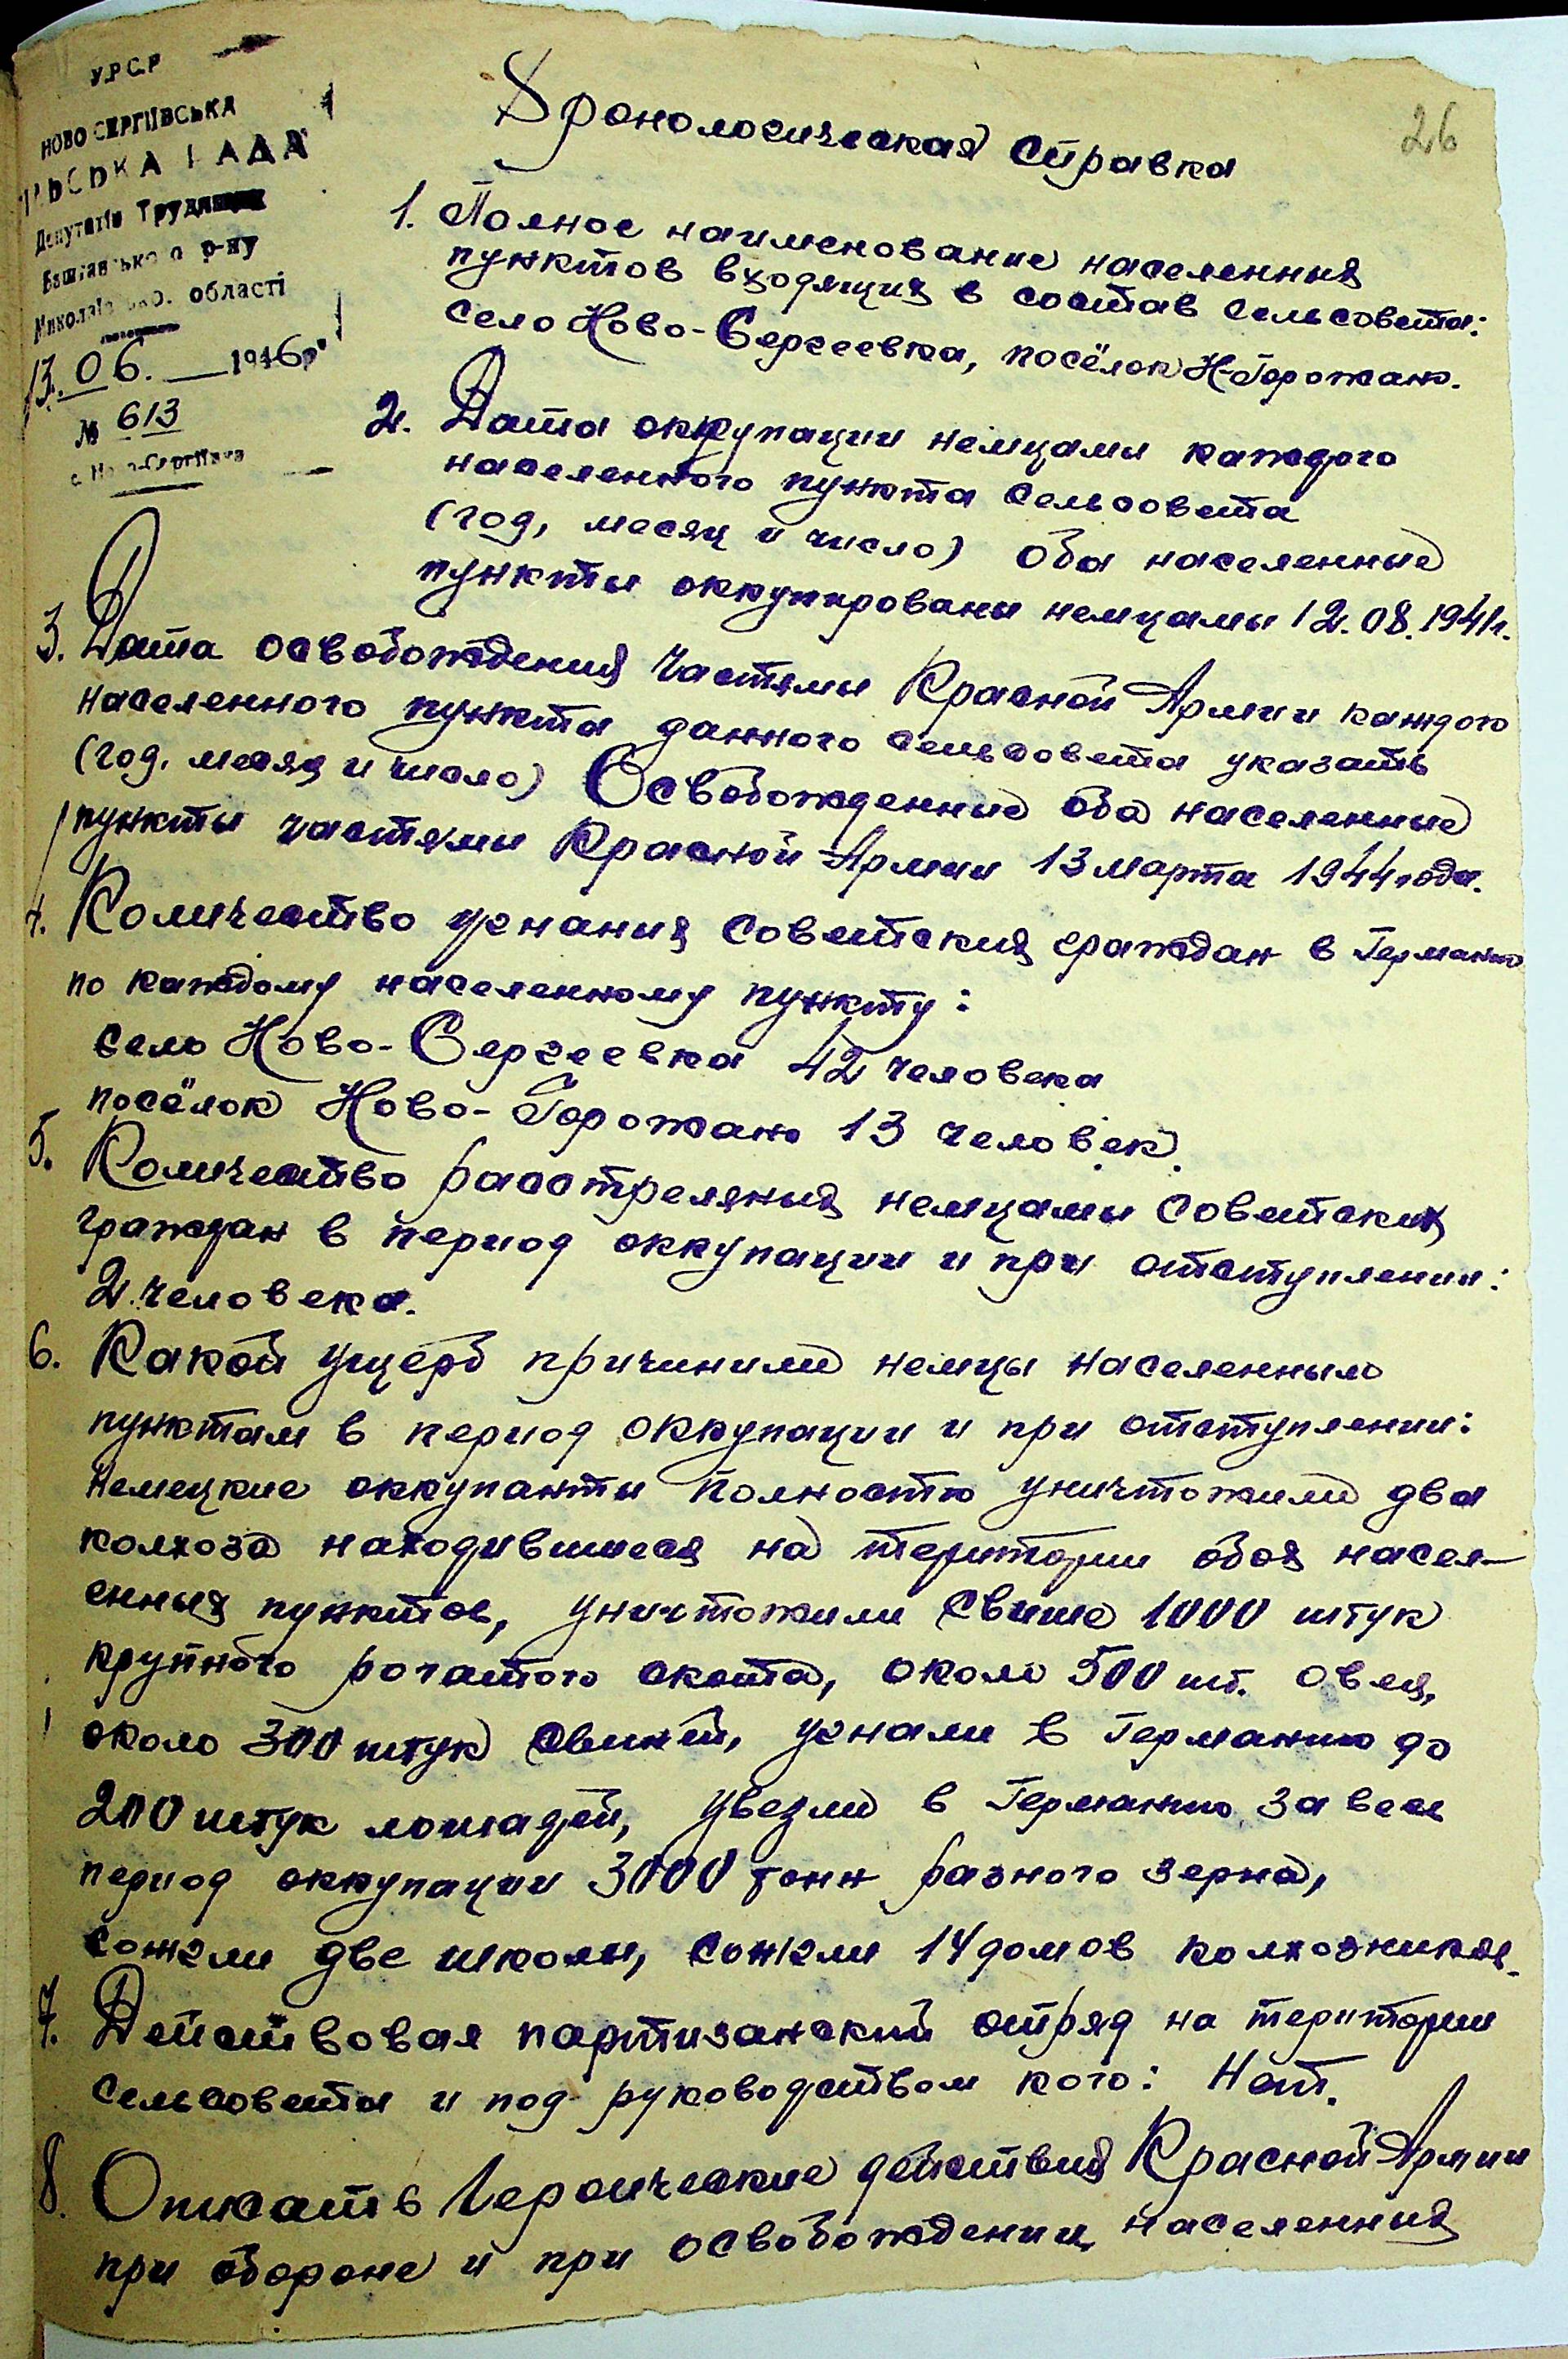 У.Р.С.Р
НОВО СЕРГІЇВСЬКА
СЬКА РАДА
Депутатів Трудящих
Баштансько о р-ну
області
13. 06. 1946 р
№ 613
с. Ново-Сергіївка
26
Хронологическая справка
1. Полное наименование населенных
пунктов входящих в состав сельсовета:
село Ново-Сергеевка, посёлок Н-Горожано.
2. Дата оккупации немцами каждого
населенного пункта сельсовета
(год, месяц и число) Оба населенные
пункты оккупированы немцами 12.08.1941г.
3. Дата освобождения частями Красной Армии каждого
населенного пункта данного сельсовета указать
(год, месяц и число) Освобожденные оба населенные
пункты частями Красной Армии 13 марта 1944 года.
4. Количество угнаных советских граждан в Германию
по каждому населенному пункту:
село Ново-Сергеевка 42 человека
посёлок Ново-Горожано 13 человек.
5. Количество расстреляных немцами советских
граждан в период оккупации и при отступлении:
2 человека.
6. Какой ущерб причинили немцы населенным
пунктам в период оккупации и при отступлении:
немецкие оккупанты полностю уничтожили два
колхоза находившиеся на територии обоя насел-
енных пунктов, уничтожили свыше 1000 штук
крупного рогатого скота, около 500 шт. овец,
около 300 штук свиней, угнали в Германию до
200 штук лошадей, увезли в Германию за весь
период оккупации 3000 тонн разного зерна,
сожгли две школы, сожгли 14 домов колхозников.
7. Действовал партизанский отряд на територии
сельсовета и под руководством кого: Нет.
8. Описать героические действия Красной Армии
при обороне и при освобождении населенных